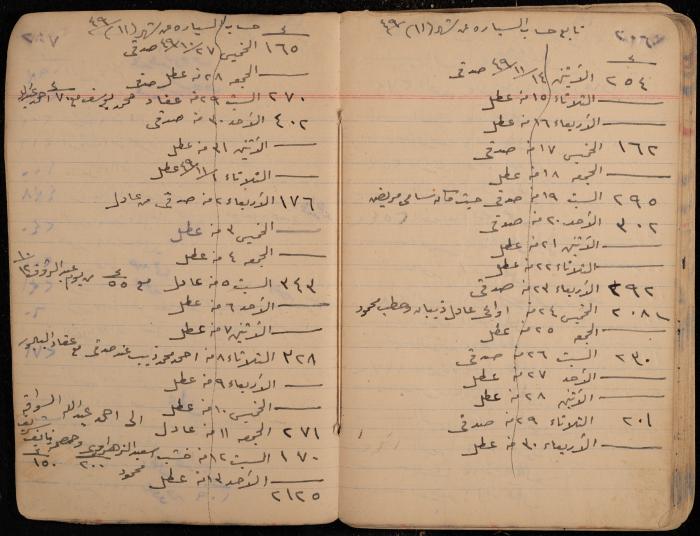 تابع حساب السياره من شهر (١١) ٤٩
٢٥٤ الأثنين ١٤/١١/٤٩ صدقى
الثلاثاء ١٥ منه عطل
الأربعاء ١٦ منه عطل
١٦٢ الخميس ١٧ منه صدقى
الجمعه ١٨ منه عطل
٢٩٥ السبت ١٩ منه صدقى حيث كان سامى مريض
٣٠٢ الأحد ٢٠ منه صدقى
الأثنين ٢١ منه عطل
الثلاثاء ٢٢ منه عطل
٣٩٢ الأربعاء ٢٣ منه صدقى
٢٠٨ الخميس ٢٤ منه عادل ذيبان وحطب محمود
الجمعه ٢٥ منه عطل
٢٣٠ السبت ٢٦ منه صدقى
الأحد ٢٧ منه عطل
الأثنين ٢٨ منه عطل
٢٠١ الثلاثاء ٢٩ منه صدقى
الأربعاء ٣٠ منه عطل
حساب السياره من شهر (١١) ٤٩
١٦٥ الخميس ٢٧/١٠/٤٩ صدقى
الجمعه ٢٨ منه عطل صدقى
٢٧٠ السبت ٢٩ منه عفاد محمد يوسف مع ٧٠
٤٠٢ الأحد ٣٠ منه صدقى
الأثنين ٣١ منه عطل
الثلاثاء ١/١١/٤٩ عطل
١٧٦ الأربعاء ٢ منه صدقى من عادل
الخميس ٣ منه عطل
الجمعه ٤ منه عطل
٣٤٣ السبت ٥ منه عادل مع ٥٥ من يوم عبد الرؤوف
الأحد ٦ منه عطل
الأثنين ٧ منه عطل
٣٢٨ الثلاثاء ٨ منه احمد محمد ذيب عند صدقى مع عفاد
الأربعاء ٩ منه عطل
الخميس ١٠ منه عطل
٢٧١ الجمعه ١١ منه عادل الى احمد عبد الله السواق
١٧٠ السبت ١٢ منه خشب سعيد محمود ٢٠٠ ١٥٠
الأحد ١٣ منه عطل
٢١٢٥